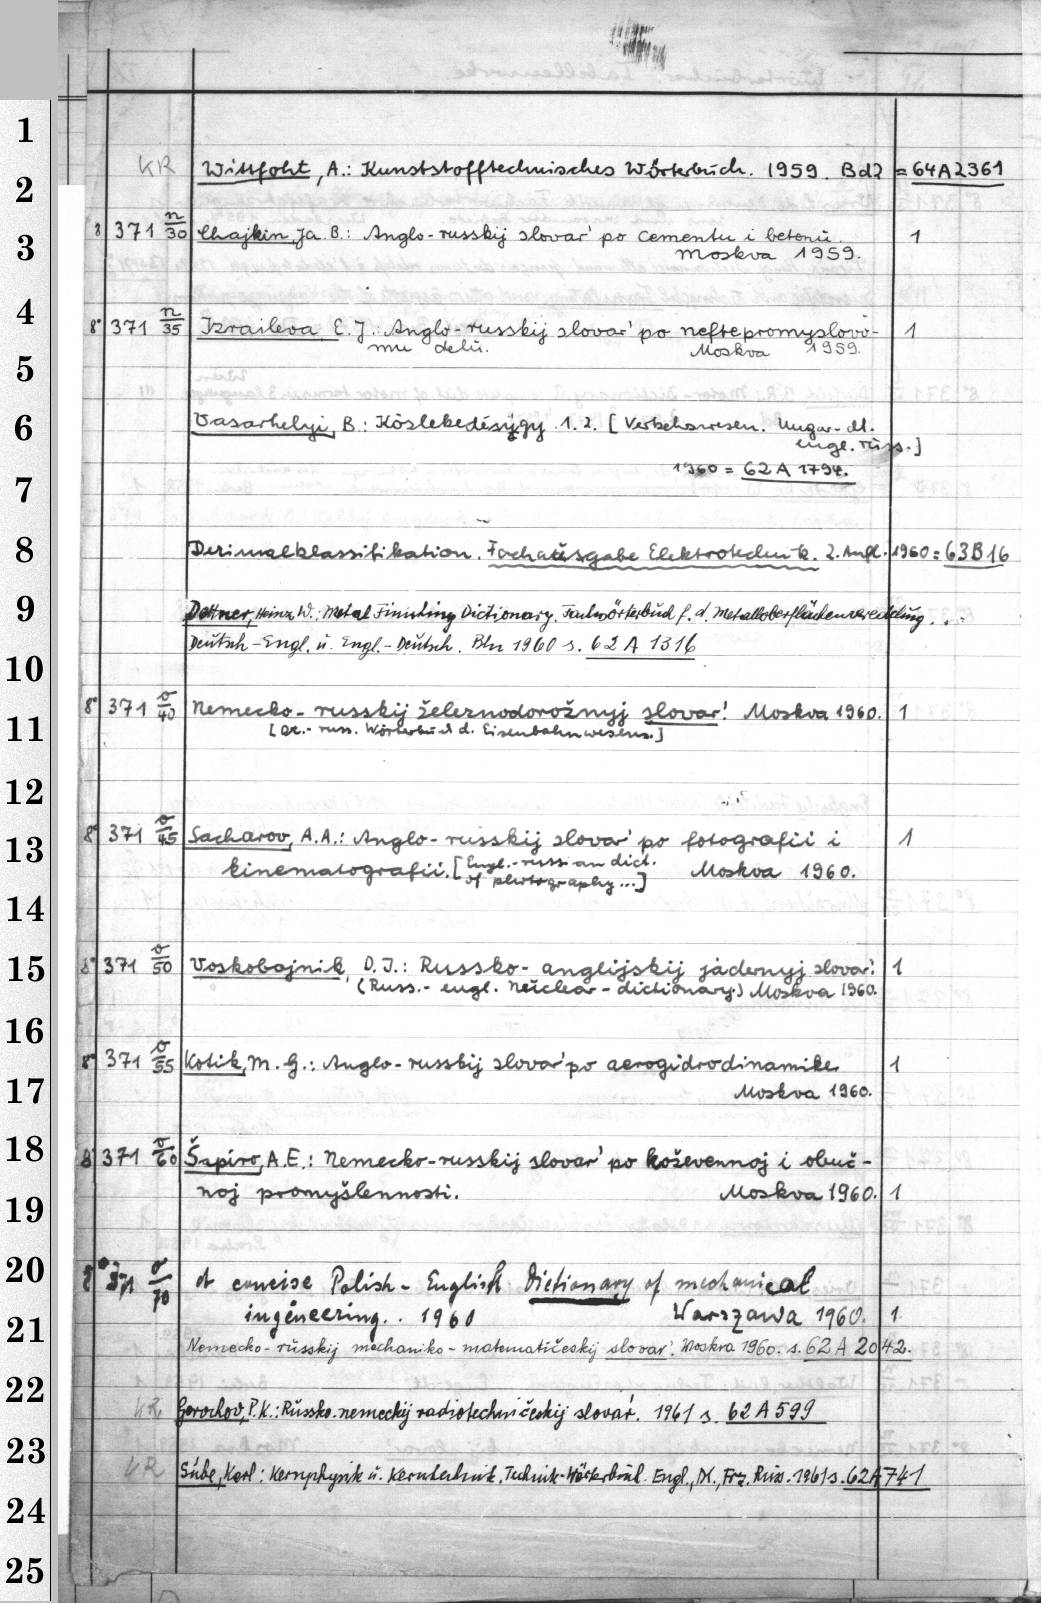 1
KR Wittfoht, A.: Kunststofftechnisches Wörterbuch. 1959. Bd 2 = 64A2361
2
8° 371 n/30 Chajkin, Ja. B.: Anglo-russkij slovar' po cementu i betonu. 1
3
Moskva 1959.
4
8° 371 n/35 Izraileva, E. J.: Anglo-russkij slovar' po neftepromyslovo- 1
mu delu. Moskva 1959.
5
6
Vasarhelyi, B.: Közlekedésügy. 1. 2. [Verkehrswesen. Ungar.-dt.
engl. russ.]
1960 = 62 A 1794.
7
8
Dezimalklassifikation. Fachausgabe Elektrotechnik. 2. Aufl. 1960 = 63B16
9
Dettner, Heinz W.: Metal Finishing Dictionary. Fachwörterbuch f. d. Metalloberflächenveredelung . . .
Deutsch-Engl. u. Engl.-Deutsch. Bln 1960 s. 62 A 1316
10
8° 371 o/40 Nemecko-russkij železnodorožnyj slovar'. Moskva 1960. 1
11
[Dt.-russ. Wörterbuch d. Eisenbahnwesens.]
12
8° 371 o/45 Sacharov, A.A.: Anglo-russkij slovar' po fotografii i 1
13
kinematografii. [Engl.-russian dict. Moskva 1960.
of photography...]
14
15
8° 371 o/50 Voskobojnik, D. I.: Russko-anglijskij jadernyj slovar'. 1
(Russ.-engl. nuclear-dictionary.) Moskva 1960.
16
8° 371 o/55 Kotik, M. G.: Anglo-russkij slovar' po aerogidrodinamike. 1
17
Moskva 1960.
18
8° 371 o/60 Šapiro, A.E.: Nemecko-russkij slovar' po koževennoj i obuv-
noj promyšlennosti. Moskva 1960. 1
19
20
8° 371 o/70 A concise Polish-English Dictionary of mechanical
ingeneering.. 1960 Warszawa 1960. 1
21
Nemecko-russkij mechaniko-matematičeskij slovar'. Moskva 1960. s. 62 A 2042.
22
KR Gorochov, P.K.: Russko-nemeckij radiotechničeskij slovar'. 1961 s. 62 A 599
23
KR Sube, Karl: Kernphysik u. Kerntechnik. Technik-Wörterbuch. Engl., Dt., Frz., Russ. 1961 s. 62A741
24
25